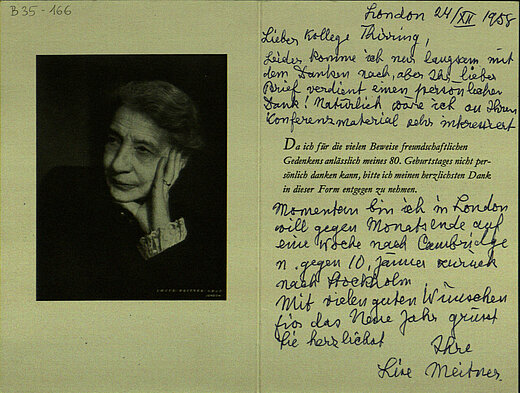 B35-166
London 24/XII 1958
Lieber Kollege Thirring,
Leider komme ich nur langsam mit
dem Danken nach, aber Ihr lieber
Brief verdient einen persönlichen
Dank! Natürlich wäre ich an Ihrem
Konferenzmaterial sehr interessiert
Da ich für die vielen Beweise freundschaftlichen
Gedenkens anlässlich meines 80. Geburtstages nicht per-
sönlich danken kann, bitte ich meinen herzlichsten Dank
in dieser Form entgegen zu nehmen.
Momentan bin ich in London
will gegen Monatsende auf
eine Woche nach Cambridge
u. gegen 10. Jänner zurück
nach Stockholm
Mit vielen guten Wünschen
für das Neue Jahr grüsst
Sie herzlichst
Ihre
Lise Meitner